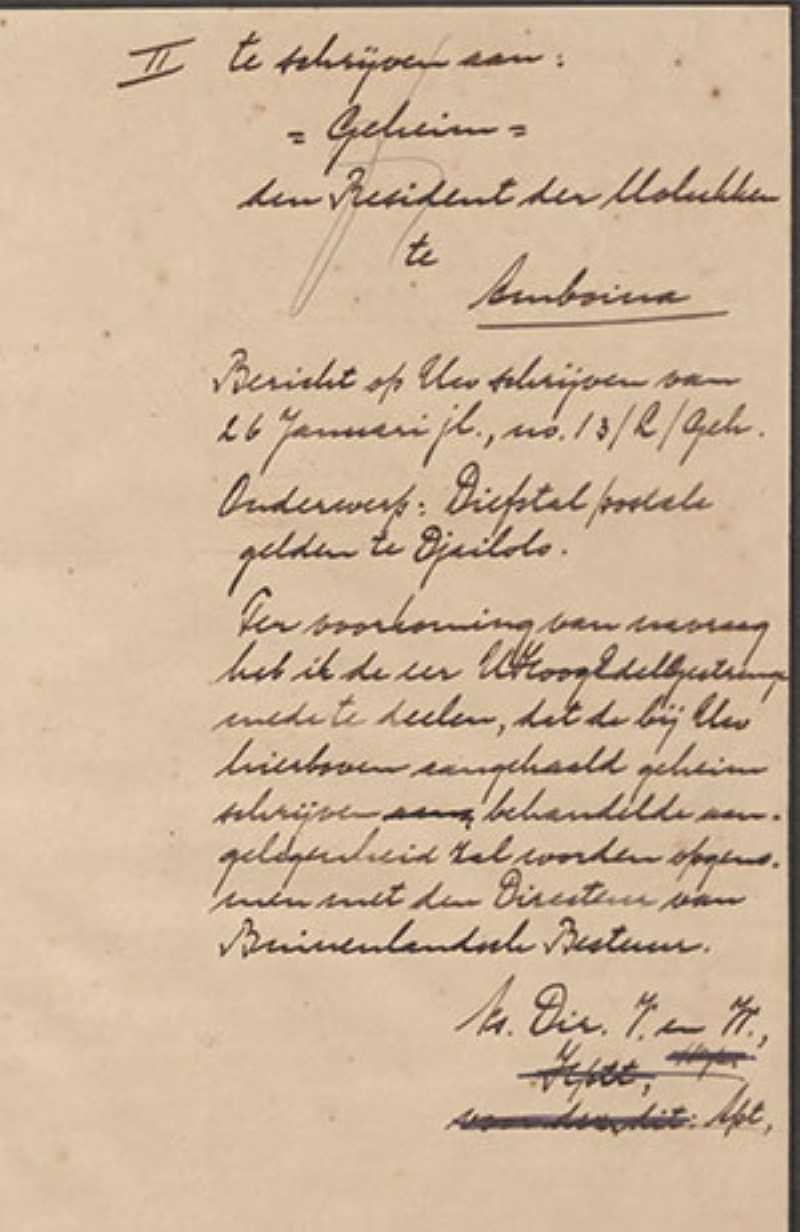 II te schrijven aan:
= Geheim =
den Resident der Molukken
te
Amboina
Bericht op Uw schrijven van
26 Januari jl., no. 13/R/Geh.
Onderwerp: Diefstal postale
gelden te Djailolo.
Ter voorkoming van navraag
heb ik de eer UHoogEdelGestrenge
mede te deelen, dat de bij Uw
hierboven aangehaald geheim
schrijven behandelde aan-
gelegenheid zal worden opgeno-
men met den Directeur van
Binnenlandsch Bestuur.
Dir. V. en W.,